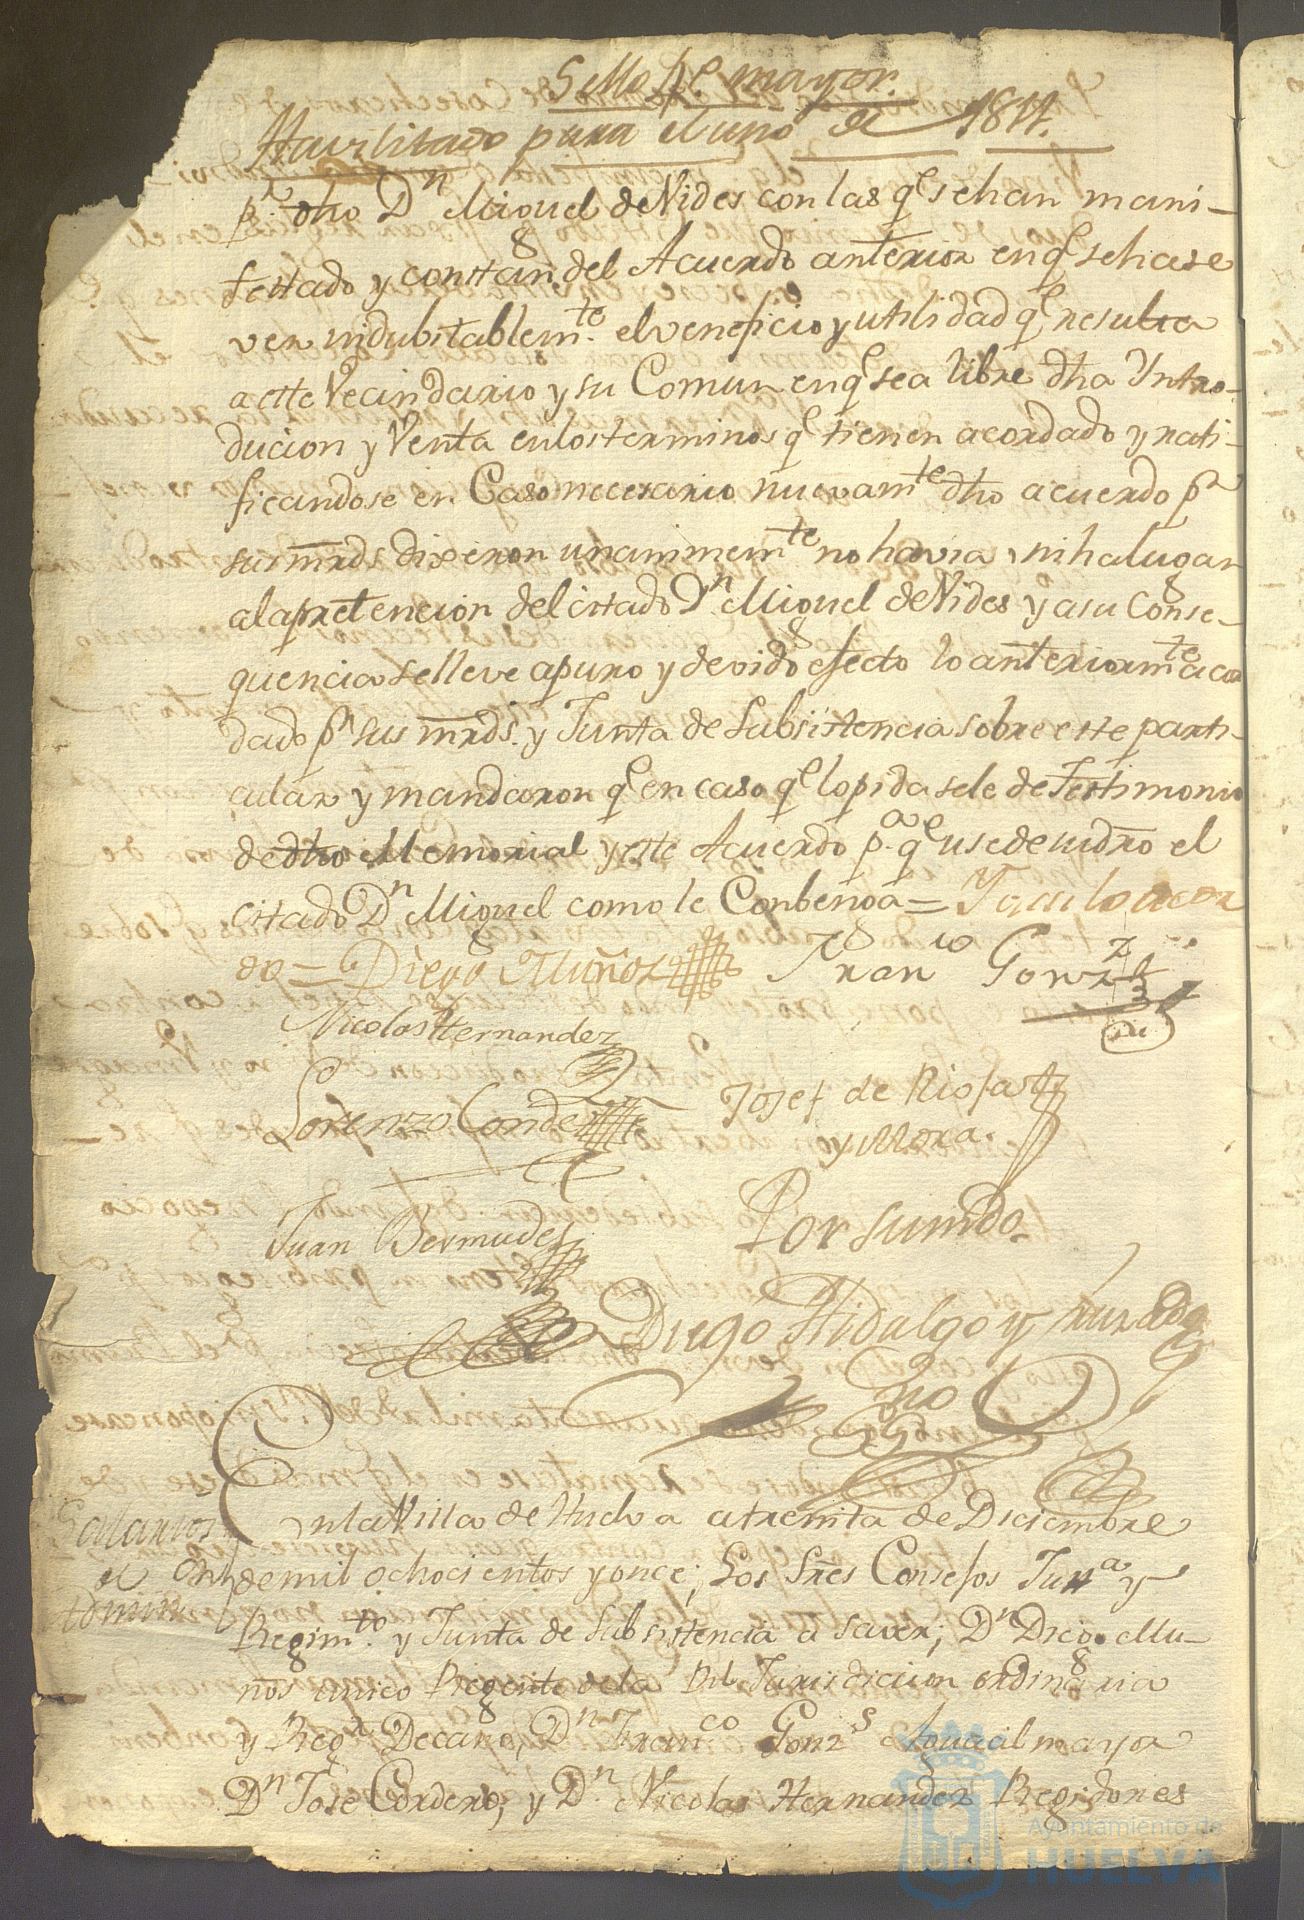 Sello p.º mayor.
Havilitado para el uno de 1811.
pr. dho Dn Miguel de Vides con las qe se han mani-
festado y constan del Acuerdo anterior en qe se hase
ver indubitablemte. el veneficio y utilidad qe resulta
a este Vecindario y su Comun en qe sea libre dha Yntro-
ducion y Venta en los terminos qe tienen acordado y rati-
ficandose en Caso necesario nuevamte dho acuerdo pr
sus mrds dixeron unanimemte no havia, ni ha lugar
a la pretencion del citado Dn Miguel de Vides y a su Conse-
quencia se lleve a puro y devido efecto lo anteriormte acor
dado pr sus mrds. y Junta de Subsistencia sobre este parti-
cular y mandaron qe en caso qe lo pida se le de Testimonio
de dho Memorial y este Acuerdo pa. qe use de su dro el
citado Dn Miguel como le Conbenga = Y asi lo acor
do = Diego Muñoz Franco Gonz
Nicolas Hernandez
Lorenzo Conde Josef de Rio
y Mora.
Juan Bermudez Por su mdo
Diego Hidalgo y
En la Villa de Huelva a treinta de Diciembre
Salarios
de mil ochocientos y once; Los Sres Consejos Jusa y
Regimto. y Junta de Subsistencia a saver; Dn Diego Mu-
ños unico Regente de la Rl Jurisdicion ordinaria
y Regr Decano, Dn Franco Gonzs Alguacil mayor
Dn Jose Cordero, y Dn. Nicolas Hernandez Regidores
Ayuntamiento de
HUELVA